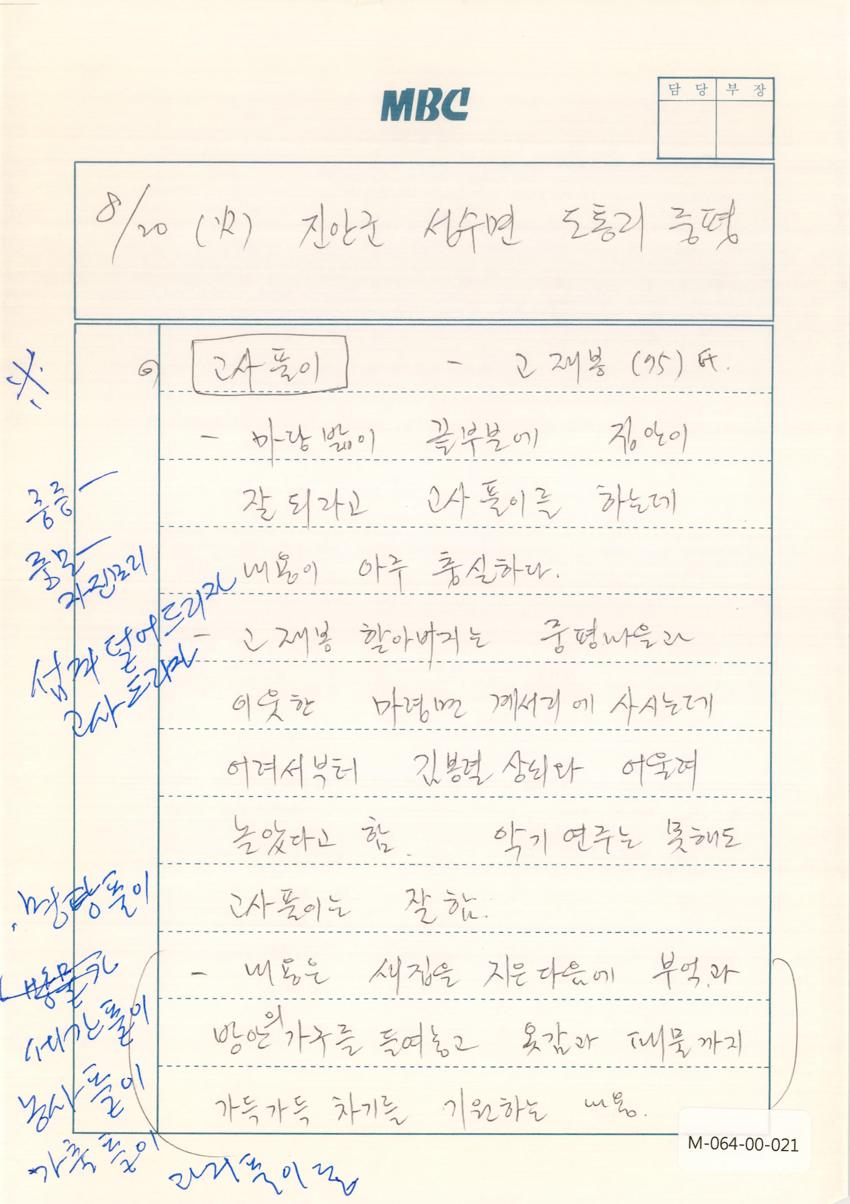 MBC
담 당 부 장
8/20 (火) 진안군 성수면 도통리 중평
① 고사풀이 - 고재봉 (75) 男.
- 마당밟이 끝부분에 집안이
잘 되라고 고사풀이를 하는데
내용이 아주 충실하다.
- 고재봉 할아버지는 중평마을과
이웃한 마령면 계서리에 사시는데
어려서부터 김봉열 상쇠와 어울려
놀았다고 함. 악기 연주는 못해도
고사풀이는 잘함.
- 내용은 새집을 지은다음에 부엌과
방안의 가구를 들여놓고 옷감과 패물까지
가득가득 차기를 기원하는 내용.
※
중중 -
풍물 -
자진모리
털어드리자
고사드리자
명당풀이
세간풀이
농사풀이
가축풀이
M-064-00-021